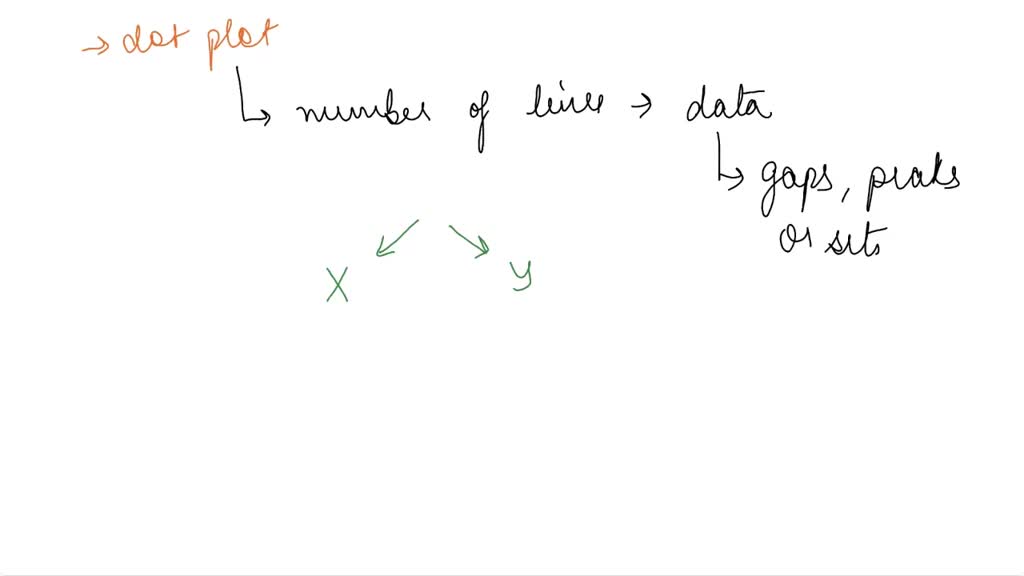 → dot plot
↳ number of line → data
↳ gaps, peaks
or sets
X y